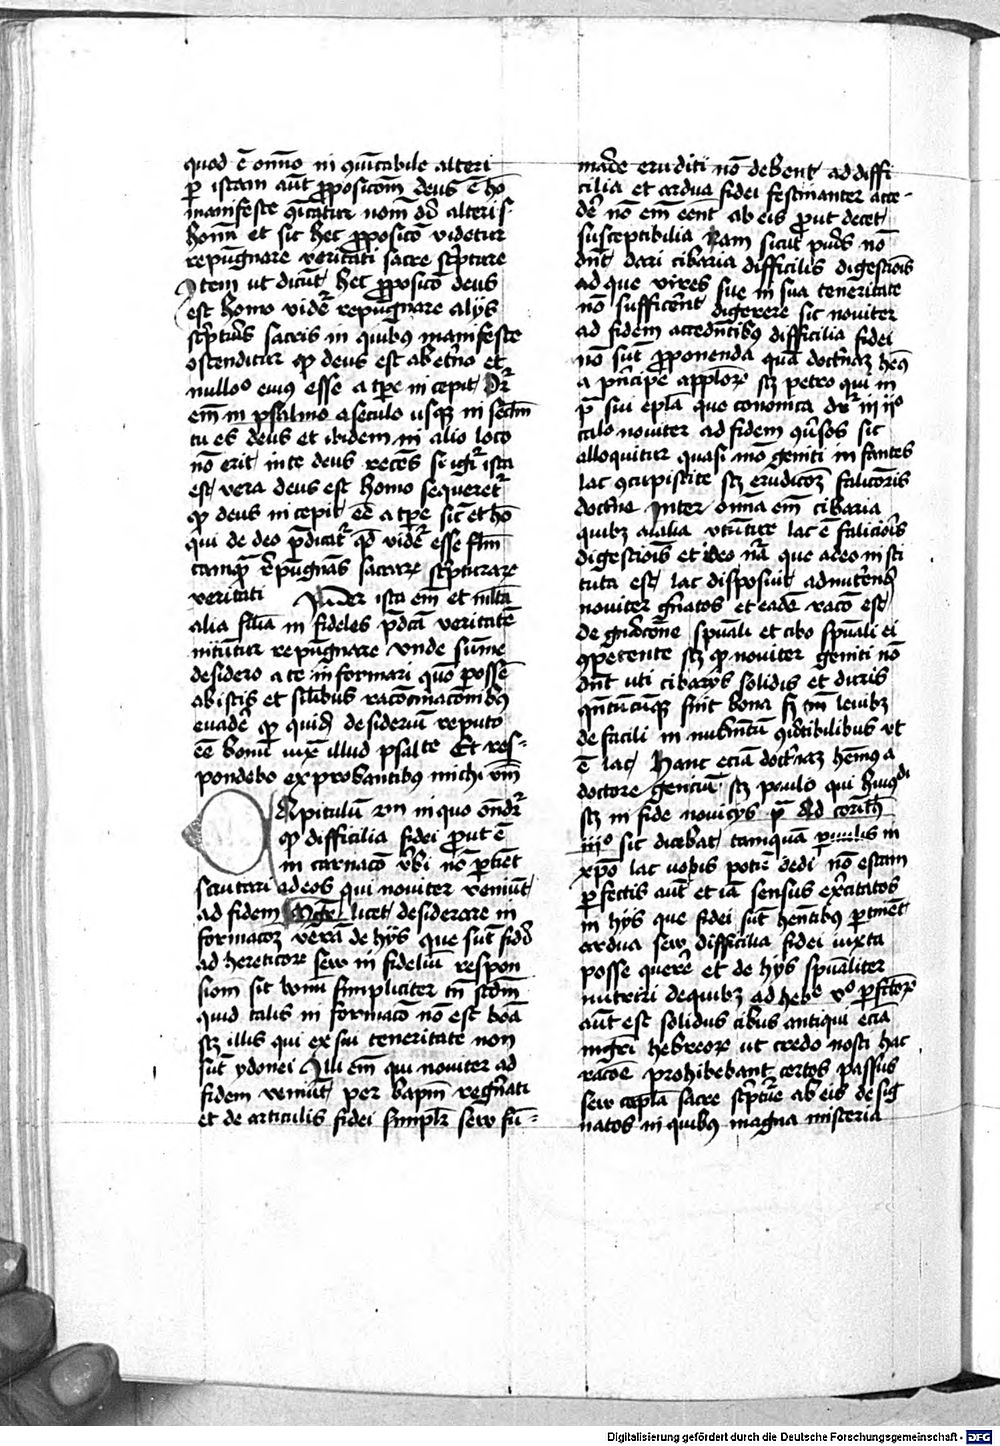 quod ē oīno in qūitabile alteri
per istam aūt ꝓpositōm deus ē hō
manifeste q̄itatur nom dī alteris
homī et sic hec ꝓpositō videtur
repūgnare veritati sacre scͥpture
Item ut dicūt hec ꝓpositō deus
est homo videt͛ repūgnare alijs
scͥpturis sacris in quibus manifeste
ostenditur qꝫ deus est ab etͥno et
nullo eius esse a tꝑe incepit Dr͛
em̄ in psalmo a seculo usqꝫ in seclm̄
tu es deus et ibidem in alio loco
nō erit in te deus recēs si igͥ ista
est vera deus est homo sequeret͛
qꝫ deus incepit eē a tꝑe sic et hō
qui de deo p̄dicat͛ qd̄ videt͛ esse flm̄
tamqꝫ repūgnās sacraꝝ scͥpturaꝝ
veritati Preter ista em̄ et mlta
alia filia infideles p̄dcā veritatē
nitūtur repūgnare vnde sūme
desidero a te informari quō possē
ab istis et silibus racōcinacōibꝰ
euadē qꝫ quidē desideriū reputo
eē bonū iuxᵃ illud psalte Et res-
pondebo exprobantibꝰ michi vm̄
Capitulū vm in quo ōndit͛
qꝫ difficilia fidei prout ē
incarnacō vbi nō ꝑtiēt
scrutari ad eos qui noviter veniūt
ad fidem Mgr̄ licet desiderare in
formacōꝫ verā de hijs que sūt fidei
ad hereticoꝝ seu infideliū respon
siom sit bonū simpliciter tn̄ scdm̄
quid talis informacō nō est boā
scꝫ illis qui ex sui teneritate non
sūt ydonei Illi em̄ qui noviter ad
fidem veniūt per bapm̄ regn̄ati
et de articulis fidei simplr͛ seu sū-
marie eruditi nō debent ad diffi
cilia et ardua fidei festinanter acce-
dē nō em̄ eēnt ab eis prout decet
susceptibilia Nam sicut pueris nō
dn̄t dari cibaria difficilis digestiois
ad que vires sue in sua teneritate
nō sufficerēt digerere sic noviter
ad fidem accedētibꝰ difficilia fidei
nō sūt ꝓponenda quā doctͥnaꝫ hēꝰ
a pͥncipe apploꝝ scꝫ petro qui in
pͣ sui epla que cononica dr͛ in iiᵒ
calo noviter ad fidem qūsos sic
alloquitur quasi mō geniti infantes
lac ꝯcupiscite scꝫ erudicōꝫ faliciōris
doctͥne Inter omnia em̄ cibaria
quibꝫ aīalia vtūtur lac ē faliciōis
digestiois et ideo nͣ que a deo insti
tuta est lac disposuit ad nutͥendū
noviter gn̄atos et eadē racō est
de gn̄acōne spūali et cibo spūali ei
ꝯpetente scꝫ qꝫ noviter geniti nō
dn̄t vti cibarijs solidis et duris
qn̄tūcūqꝫ sint bona sꝫ in leuibꝫ
de facili in nubm̄tū ꝯūtibilibus vt
ē lac Hanc eciā doctͥnaꝫ hēmꝰ a
doctore genciū scꝫ paulo qui huiꝰdi
scꝫ in fide novicijs pͣ ad corinth
iijᵒ sic dicebat tamquā paruulis in
xpō lac uobis potū dedi nō escam
ꝑfectis aūt et iā sensus exͨitatos
in hijs que fidei sūt hentibꝰ ꝑtinēt
ardua seu difficilia fidei iuxta
posse querē et de hijs spūaliter
nutriri de quibꝫ ad hebᵉ vᵒ ꝑfctoꝝ
aūt est solidus cibus antiqui eciā
mgͥi hebreoꝝ ut credo nosti hac
racōe prohibebant certos passus
seu capla sacre scͥptūe ab eis desig
natos in quibꝰ magna misteria
Digitalisierung gefördert durch die Deutsche Forschungsgemeinschaft - DFG